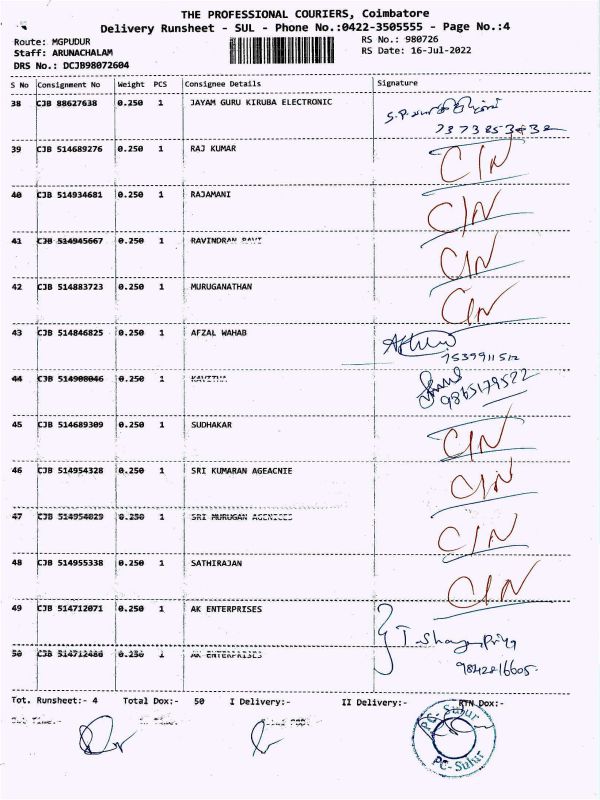 THE PROFESSIONAL COURIERS, Coimbatore
Delivery Runsheet - SUL - Phone No.:0422-3505555 - Page No.:4
Route: MGPUDUR
RS No.: 980726
Staff: ARUNACHALAM
RS Date: 16-Jul-2022
DRS No.: DCJB98072604
S No Consignment No Weight PCS Consignee Details Signature
38 CJB 88627638 0.250 1 JAYAM GURU KIRUBA ELECTRONIC
7373853432
39 CJB 514689276 0.250 1 RAJ KUMAR C/N
40 CJB 514934681 0.250 1 RAJAMANI C/N
41 CJB 514945667 0.250 1 RAVINDRAN RAVI C/N
42 CJB 514883723 0.250 1 MURUGANATHAN C/N
43 CJB 514846825 0.250 1 AFZAL WAHAB
7539911512
44 CJB 514908046 0.250 1 KAVITHA
9865179522
45 CJB 514689309 0.250 1 SUDHAKAR C/N
46 CJB 514954328 0.250 1 SRI KUMARAN AGEACNIE C/N
47 CJB 514954029 0.250 1 SRI MURUGAN AGENICES C/N
48 CJB 514955338 0.250 1 SATHIRAJAN C/N
49 CJB 514712071 0.250 1 AK ENTERPRISES
50 CJB 514712486 0.250 1 AK ENTERPRISES
9842816605
Tot. Runsheet:- 4 Total Dox:- 50 I Delivery:- II Delivery:- RTN Dox:-
Out Time:- In Time:-
PC-Sulur
PC-Sulur